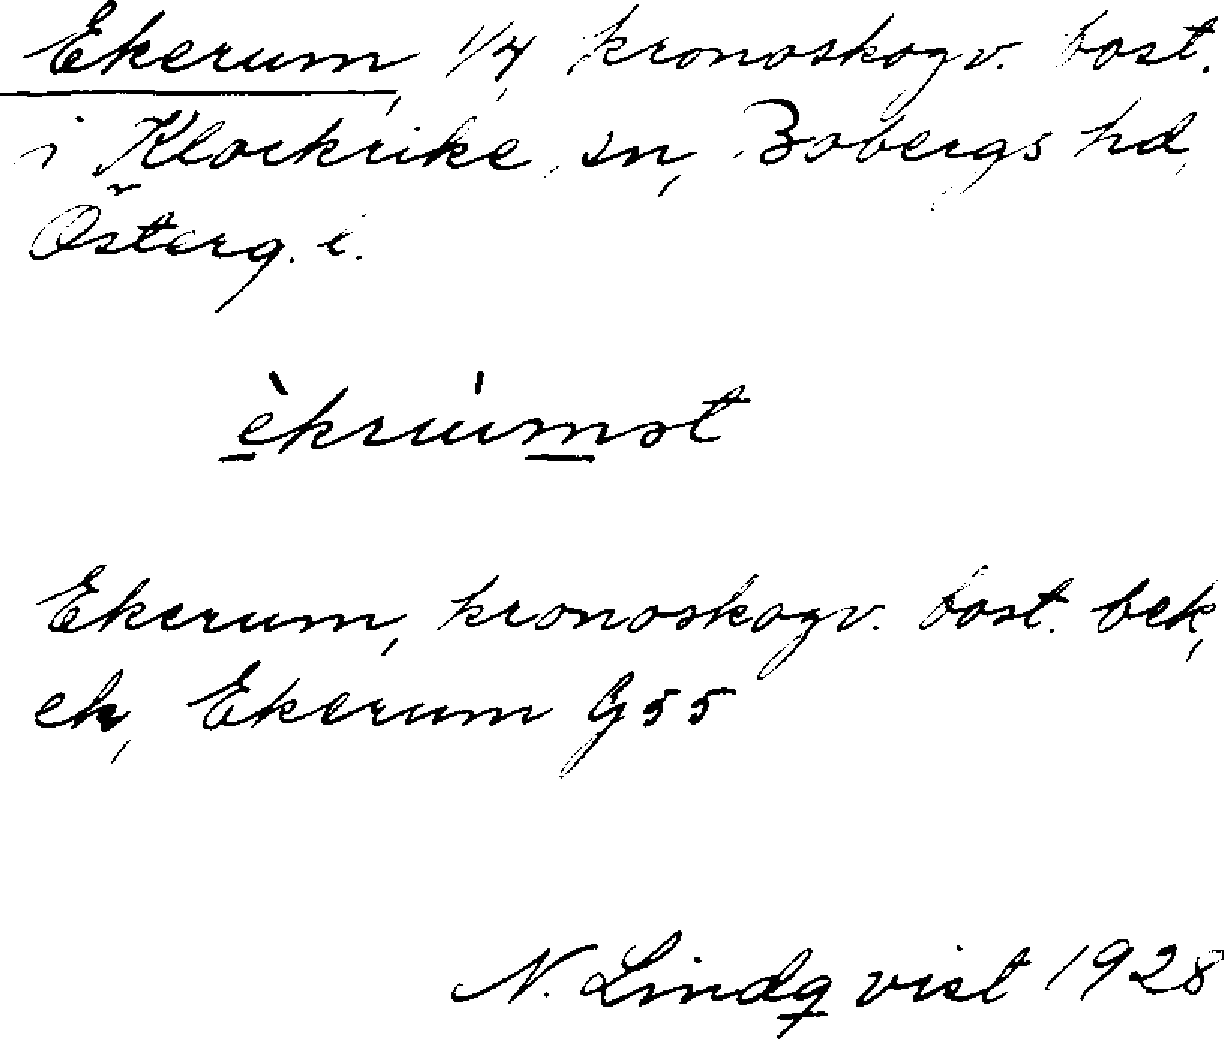 Ekerum, 1/4 kronoskogv. bost.
i Klockrike sn, Bobergs hd,
Österg. l.
èkrumst
Ekerum, kronoskogv. bost. bek,
ek, Ekerum G55
N. Lindqvist 1928